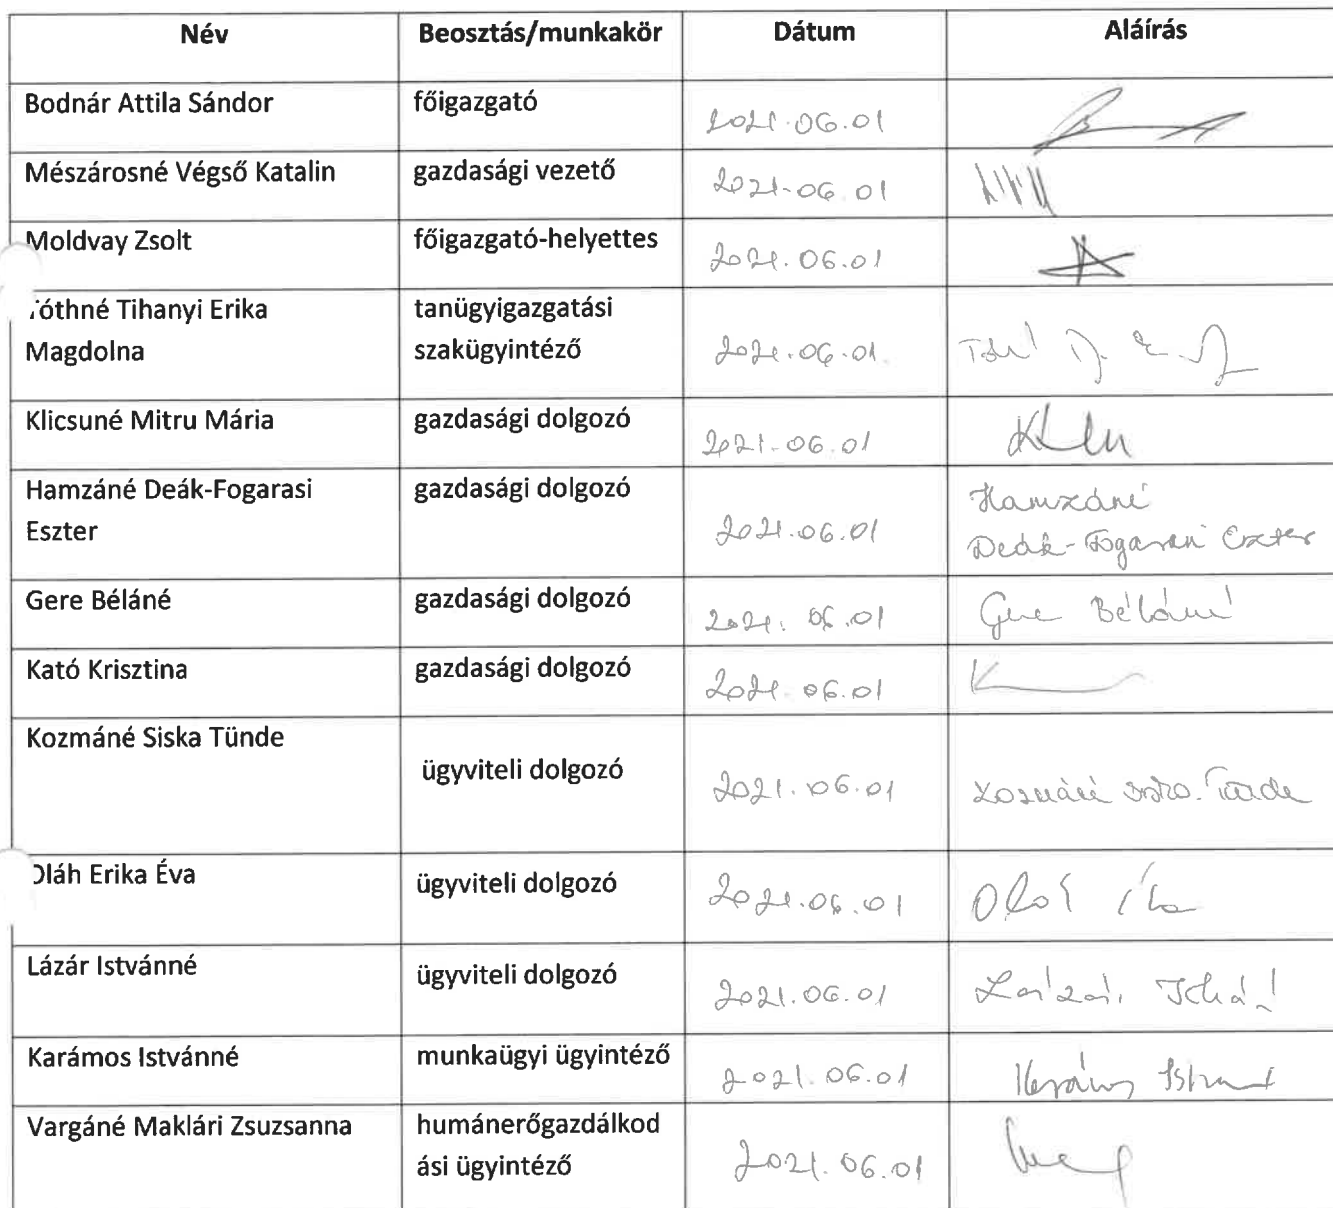 Név Beosztás/munkakör Dátum Aláírás
Bodnár Attila Sándor főigazgató 2021.06.01
Mészárosné Végső Katalin gazdasági vezető 2021.06.01
Moldvay Zsolt főigazgató-helyettes 2021.06.01
Tóthné Tihanyi Erika tanügyigazgatási
Magdolna szakügyintéző 2021.06.01.
Klicsuné Mitru Mária gazdasági dolgozó 2021.06.01
Hamzáné Deák-Fogarasi gazdasági dolgozó Hamzáné
Eszter 2021.06.01 Deák-Fogarasi Eszter
Gere Béláné gazdasági dolgozó 2021.06.01 Gere Béláné
Kató Krisztina gazdasági dolgozó 2021.06.01
Kozmáné Siska Tünde
ügyviteli dolgozó 2021.06.01 Kozmáné Siska Tünde
Oláh Erika Éva ügyviteli dolgozó 2021.06.01
Lázár Istvánné ügyviteli dolgozó 2021.06.01
Karámos Istvánné munkaügyi ügyintéző 2021.06.01
Vargáné Maklári Zsuzsanna humánerőgazdálkod
ási ügyintéző 2021.06.01